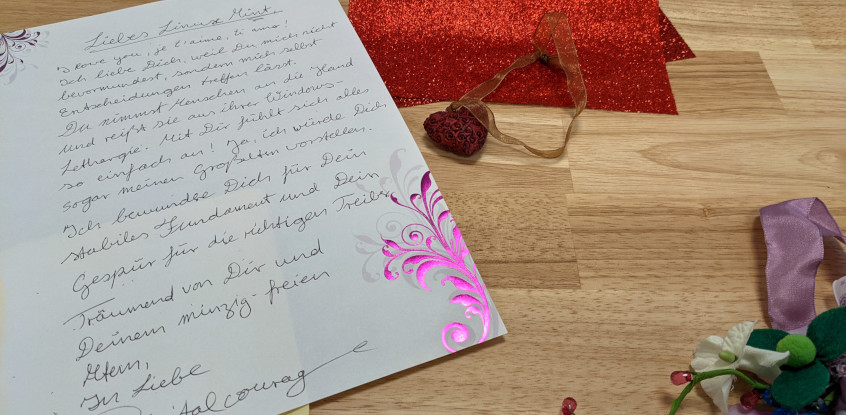 Liebes Linux Mint,
I love you, je t'aime, ti amo!
Ich liebe Dich, weil Du mich nicht
bevormundest, sondern mich selbst
Entscheidungen treffen lässt.
Du nimmst Menschen an die Hand
und reißt sie aus ihrer Windows-
Lethargie. Mit Dir fühlt sich alles
so einfach an! Ja, ich würde Dich
sogar meinen Großeltern vorstellen.
Ich bewundre Dich für Dein
stabiles Fundament und Dein
Gespür für die richtigen Treiber.
Träumend von Dir und
Deinem minzig-freien
Atem,
In Liebe
Digitalcourage